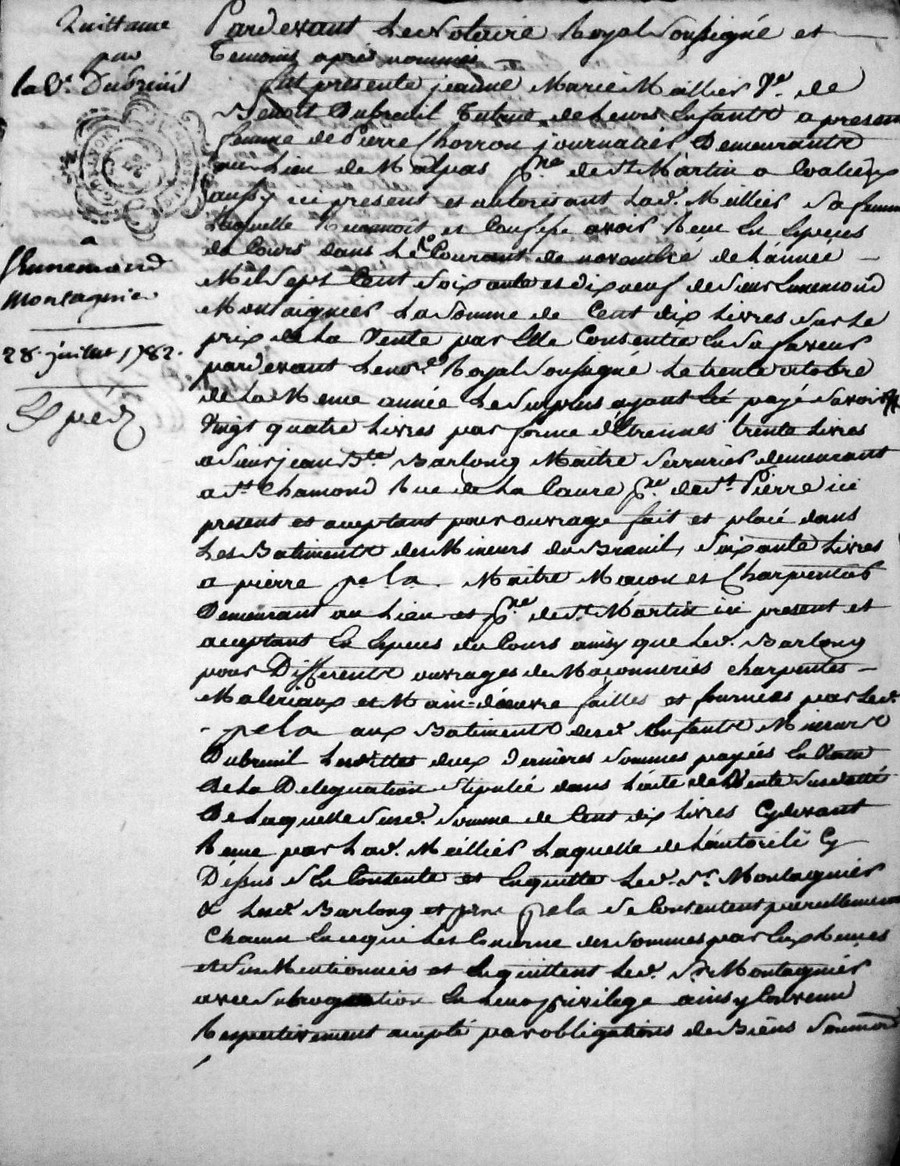 Quittance
par
la Ve. Dubreuil
a
Ennemond
Montagnier
28. juillet 1782.
Expéd
Pardevant Le Notaire Royal Soussigné et
Temoins apres nommés
fut presente jeanne Marie Meillier Ve. de
Benoit Dubreuil Tutrice de Leurs Enfants a present
femme de Pierre Chorron journalier Demeurants
au Lieu de Malpas psse de St Martin a Coalieux
aussy ici present et autorisant Lad. Meillier Sa femme
Laquelle Reconnoit et Confesse avoir Recu En Especes
du Cours dans Le Courant de novembre de L'année
Mil Sept Cent Soixante et dix neuf de Sieur Ennemond
Montaignier La Somme de Cent dix Livres Sur Le
prix de La Vente par Elle Consentie En Sa faveur
pardevant Le no.e Royal Soussigné Le trente octobre
de La Meme année Le Surplus ayant Eté payé Savoir
Vingt quatre Livres par forme d'Etrennes trente Livres
a Sieur jean Bte Barlong Maitre Serrurier demeurant
a St Chamond Rue de La psse de St Pierre ici
present et aceptant pour ouvrage fait et placé dans
Les Batiments des Mineurs du Breuil, Soixante Livres
a pierre pela Maitre Maçon et Charpentier
Demeurant au Lieu et psse de St Martin ici present et
aceptant En Especes du Cours ainsy que Led. Barlong
pour Differents ouvrages de Maçonneries charpentes
Materiaux et Main-d'œuvre faittes et fournies par Led.
pela aux Batiments desd. Enfants Mineurs
Dubreuil Lesdittes deux Dernieres Sommes payées En
De La Delegation Stipulée dans L'acte de Vente Susdatté
De Laquelle Susd. Somme de Cent dix Livres Cydevant
Recue par Lad. Meillier Laquelle de L'autorité Cy
Dessus S'En Contente et En quitte Led. Sr. Montagnier
& Lesd. Barlong et pela Se Contentent pareillement
Chacun En ce qui Les Concerne des Sommes par Eux Recues
et Sus Mentionnées et En quittent Led. Sr Montagnier
avec Subrogation En Leur privilege ainsy Convenu
Respectivement acepté par obligations de Biens